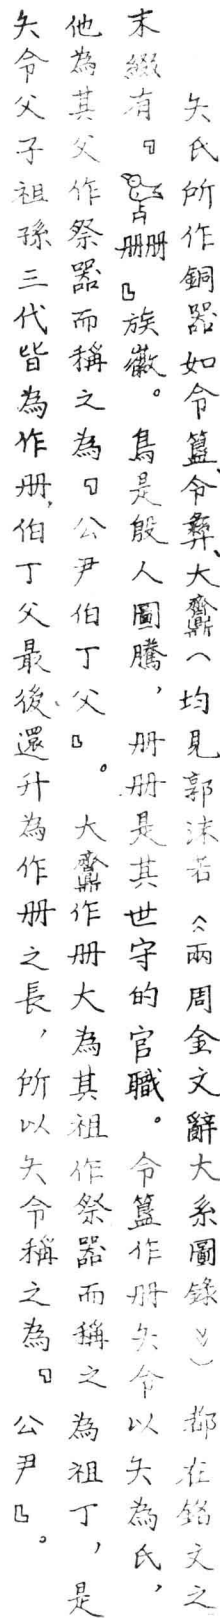 夨氏所作銅器如令簋、令彝、大齋鼎(均見郭沫若《兩周金文辭大系圖錄》)都在銘文之
末綴有『册册』族徽。鳥是殷人圖騰，册册是其世守的官職。令簋作册夨令以夨為氏，
他為其父作祭器而稱之為『公尹伯丁父』。大齋鼎作册大為其祖作祭器而稱之為祖丁，是
夨令父子祖孫三代皆為作册，伯丁父最後還升為作册之長，所以夨令稱之為『公尹』。